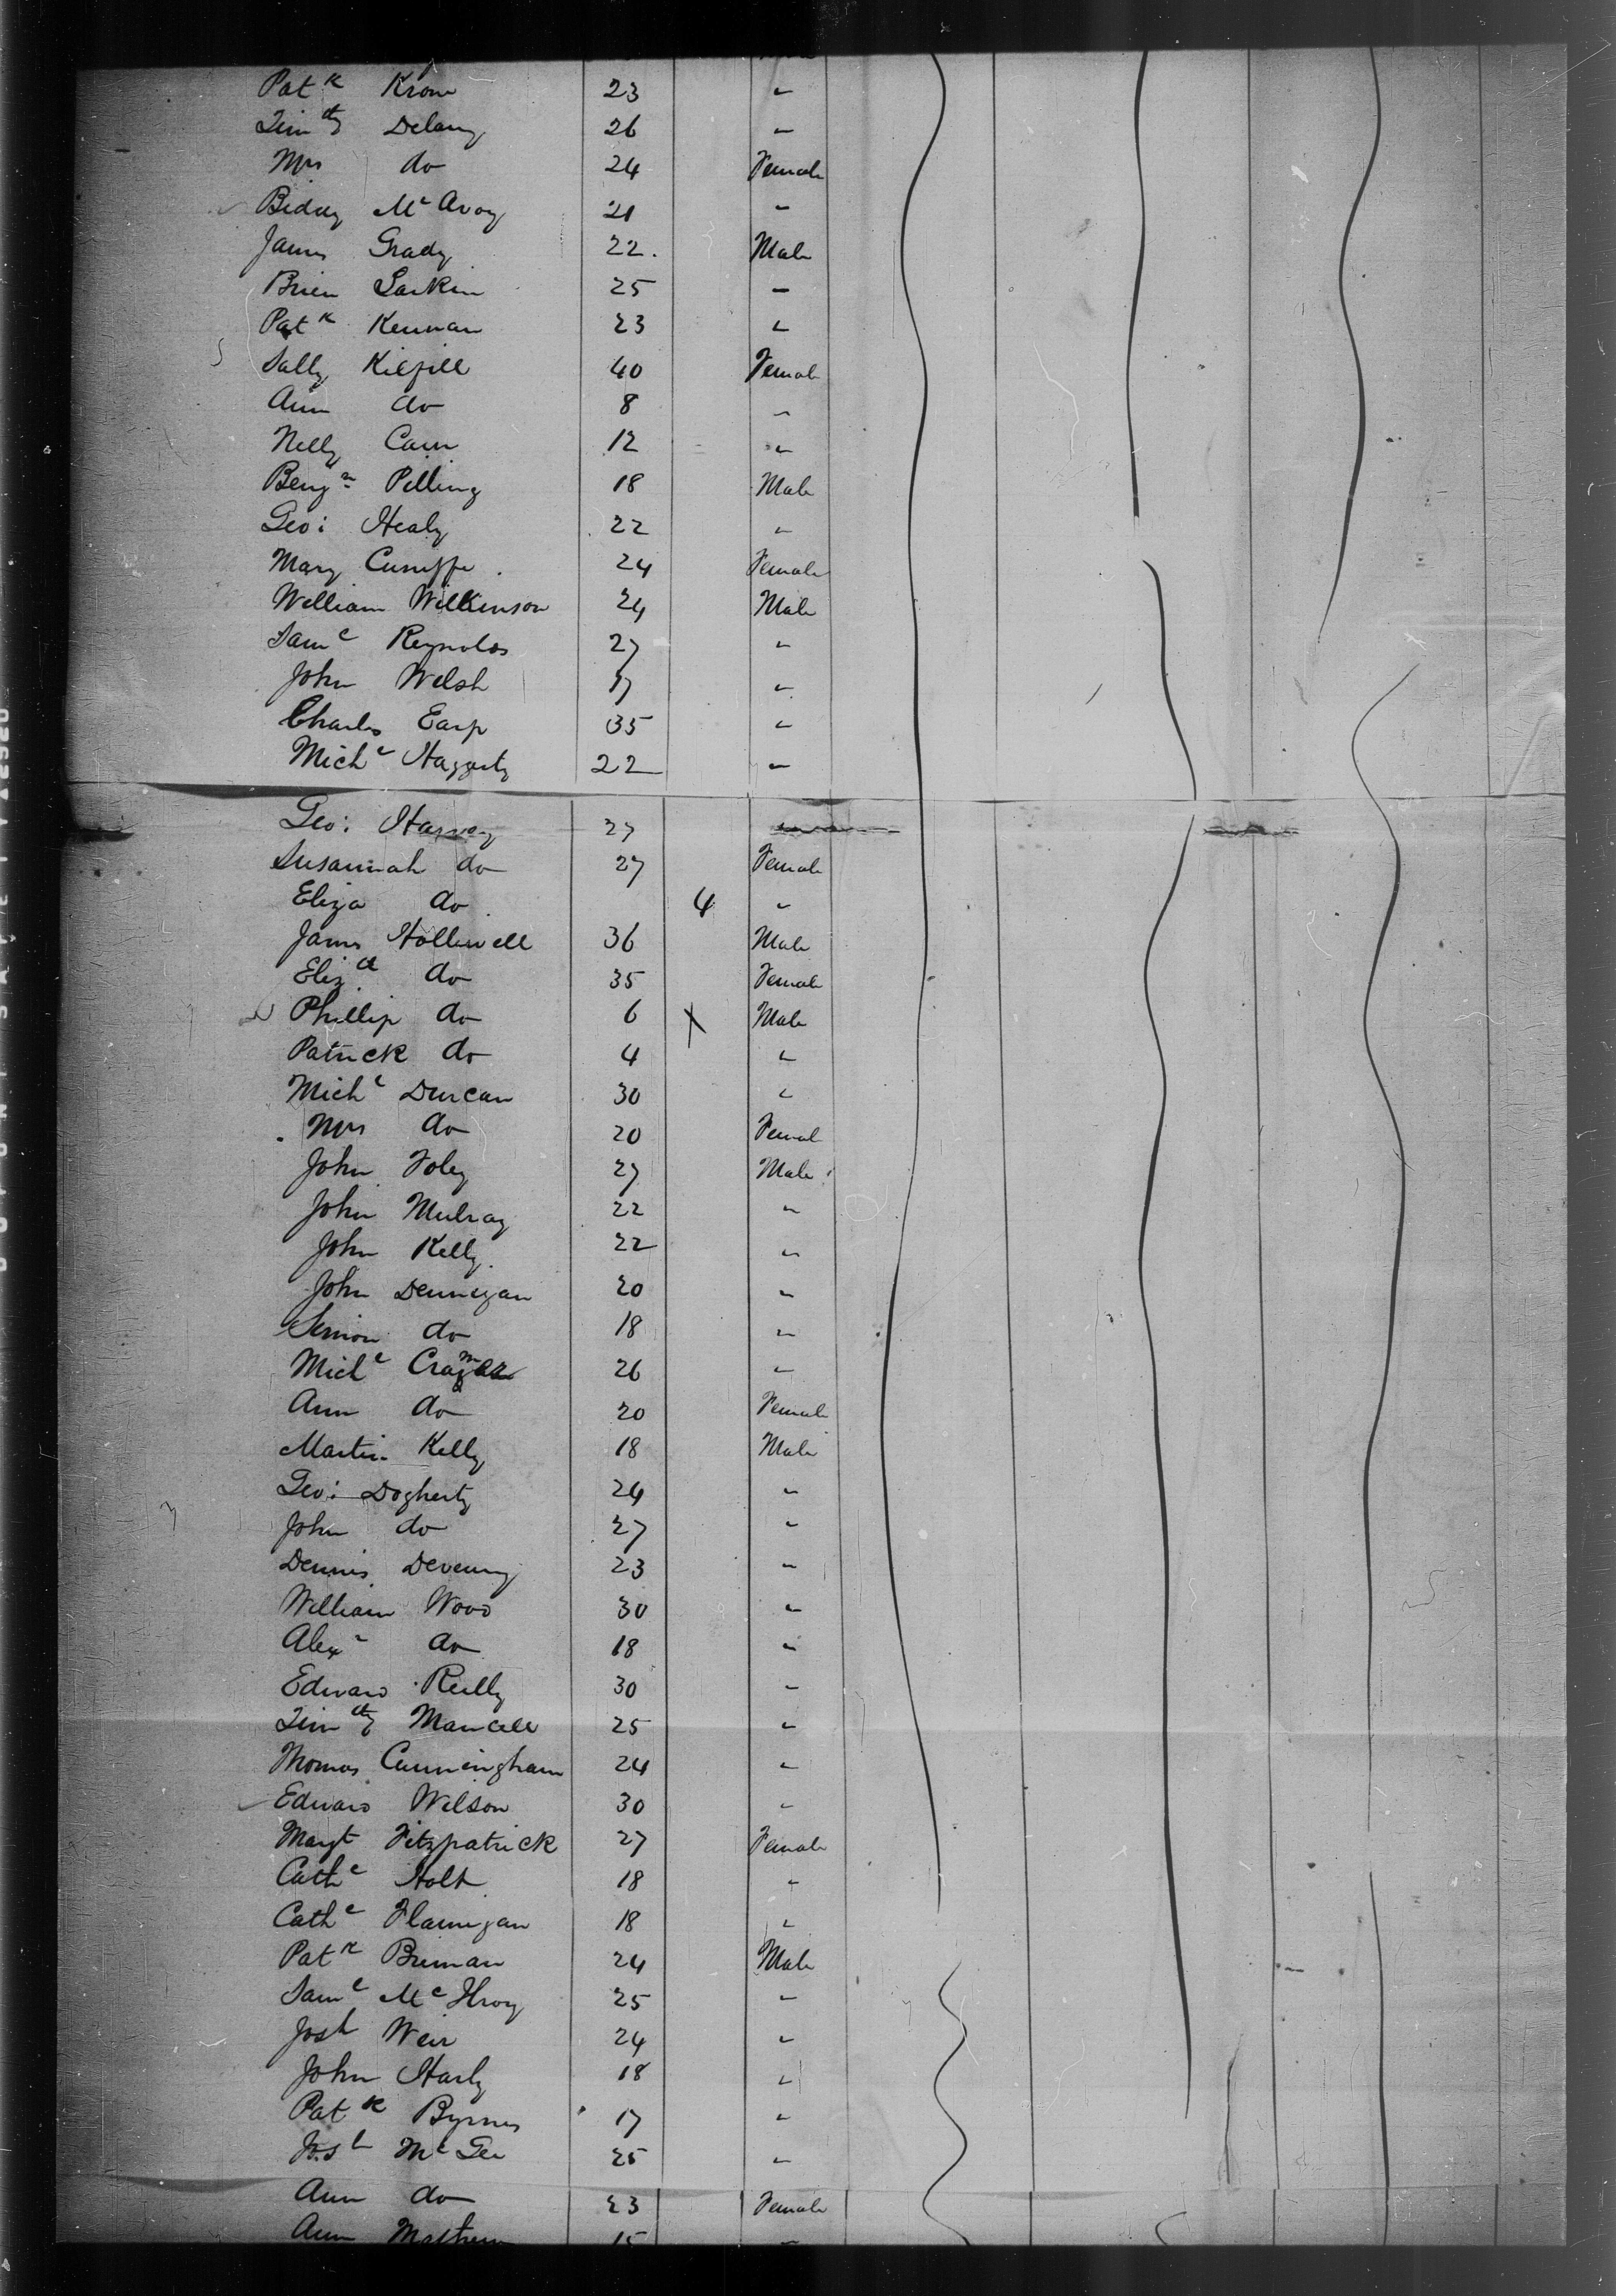 Patk Krow 23 "
Timthy Delany 26 "
Mrs do 24 Female
Biddy McAvoy 21 "
James Grady 22. Male
Brien Larkin 25 "
Patk Keenan 23 "
Sally Kilgill 40 Female
Ann do 8 "
Nelly Cain 12 "
Benjn Pilling 18 Male
Geo: Healy 22 "
Mary Cuniffe 24 Female
William Wilkinson 24 Male
Saml Reynolds 27 "
John Welsh 17 "
Charles Earp 35 "
Michl Haggerty 22 "
Geo: Harvey 27
Susannah do 27 Female
Eliza do 4 "
James Hollewell 36 Male
Elizth do 35 Female
Phillip do 6 X Male
Patrick do 4 "
Michl Durcan 30 "
Mrs do 20 Female
John Foley 27 Male
John Mulray 22 "
John Kelly 22 "
John Dennigan 20 "
Simon do 18 "
Michl 26 "
Ann do 20 Female
Martin Kelly 18 Male
Geo: Dogherty 24 "
John do 27 "
Dennis Deveney 23 "
William Wood 30 "
Alexr do 18 "
Edward Reilly 30 "
Timthy Mancell 25 "
Thomas Cunningham 24 "
Edward Wilson 30 "
Margt Fitzpatrick 27 Female
Cathe Holt 18 "
Cathe Flannigan 18 "
Patk Brennan 24 Male
Saml McIlroy 25 "
Josh Weir 24 "
John Harly 18 "
Patk Byrnes 17 "
Josh McGee 25 "
Ann do 23 Female
Ann Mathews 15 "